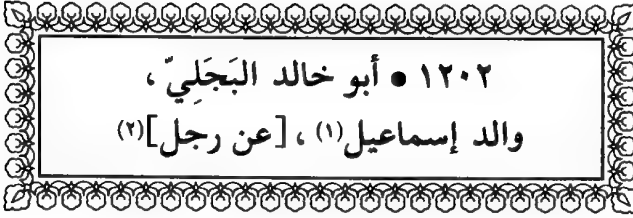 ١٢٠٢ ● أبو خالد البَجَلِيّ،
والد إسماعيل(١)، [عن رجل](٢)